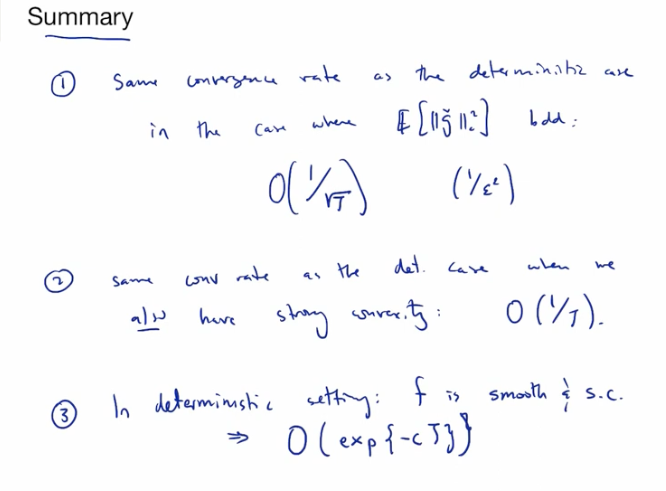 Summary
① Same convergence rate as the deterministic case
in the case where E[‖g̃‖₂²] bdd:
O(1/√T) (1/ε²)
② same conv rate as the det. case when we
also have strong convexity: O(1/T).
③ In deterministic setting: f is smooth & s.c.
⇒ O(exp{-cT})